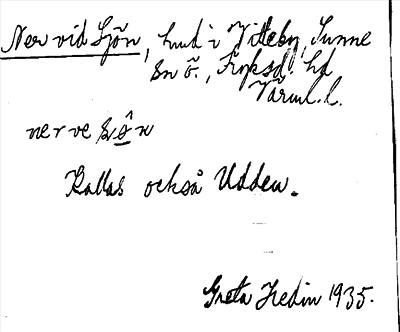 Ner vid Sjön, hmd i Vitteby, Sunne
sn ö., Fryksd. hd
Värml. l.
nerve sôn
Kallas också Udden.
Greta Hedin 1935.